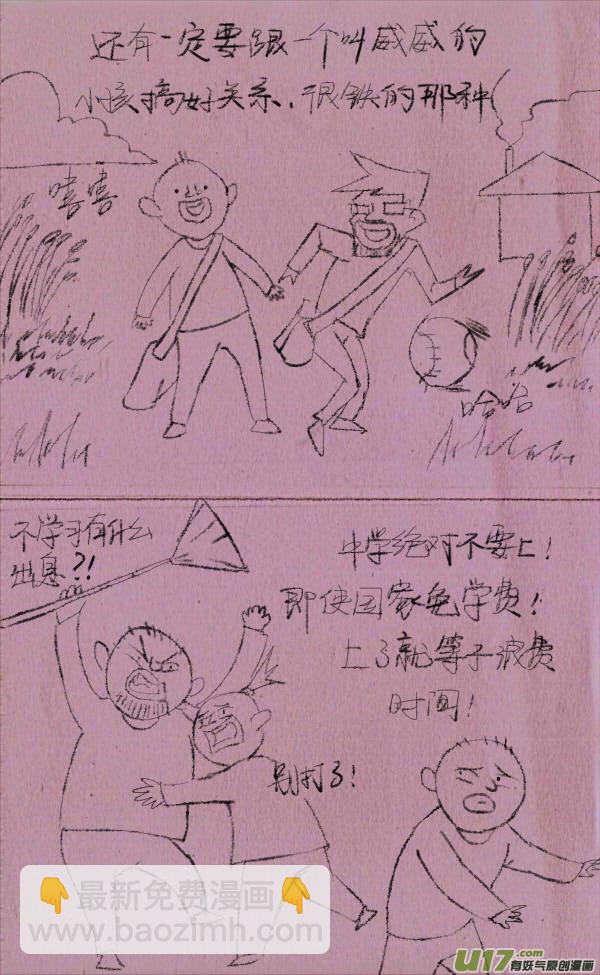 还有一定要跟一个叫威威的
小孩搞好关系，很铁的那种
嘻嘻
哈哈
不学习有什么
出息?!
中学绝对不要上!
即使国家免学费!
上了就等于浪费
时间!
别打了!
👇最新免费漫画👇
www.baozimh.com
U17.com
有妖气原创漫画